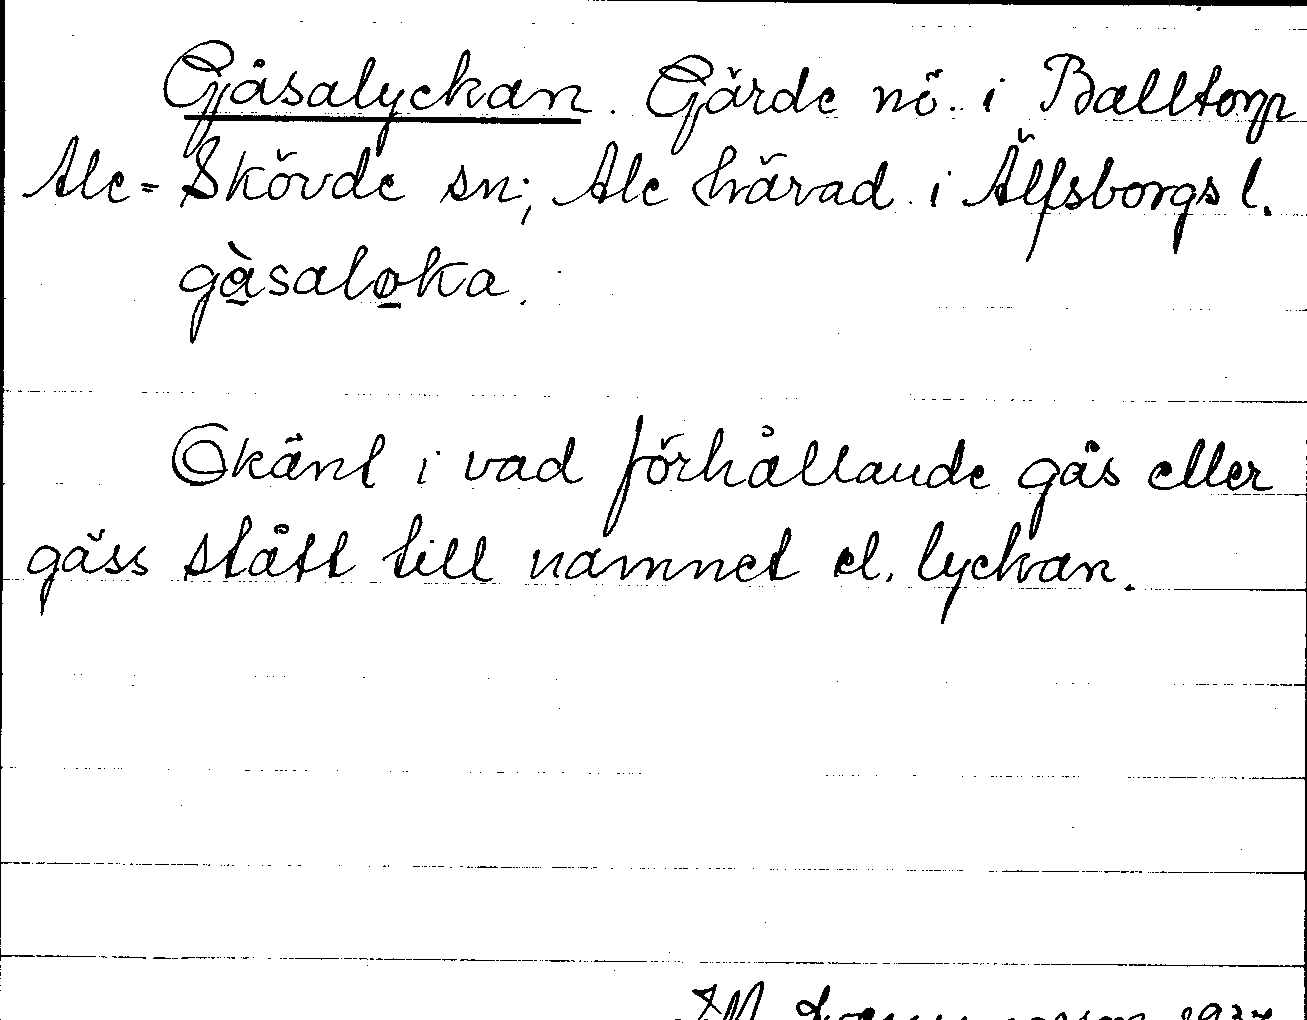 Gåsalyckan. Gärde nö. i Balltorp
Ale-Skövde sn; Ale härad i Älfsborgs l.
gàsaloka.
Okänt i vad förhållande gås eller
gäss stått till namnet el. lyckan.